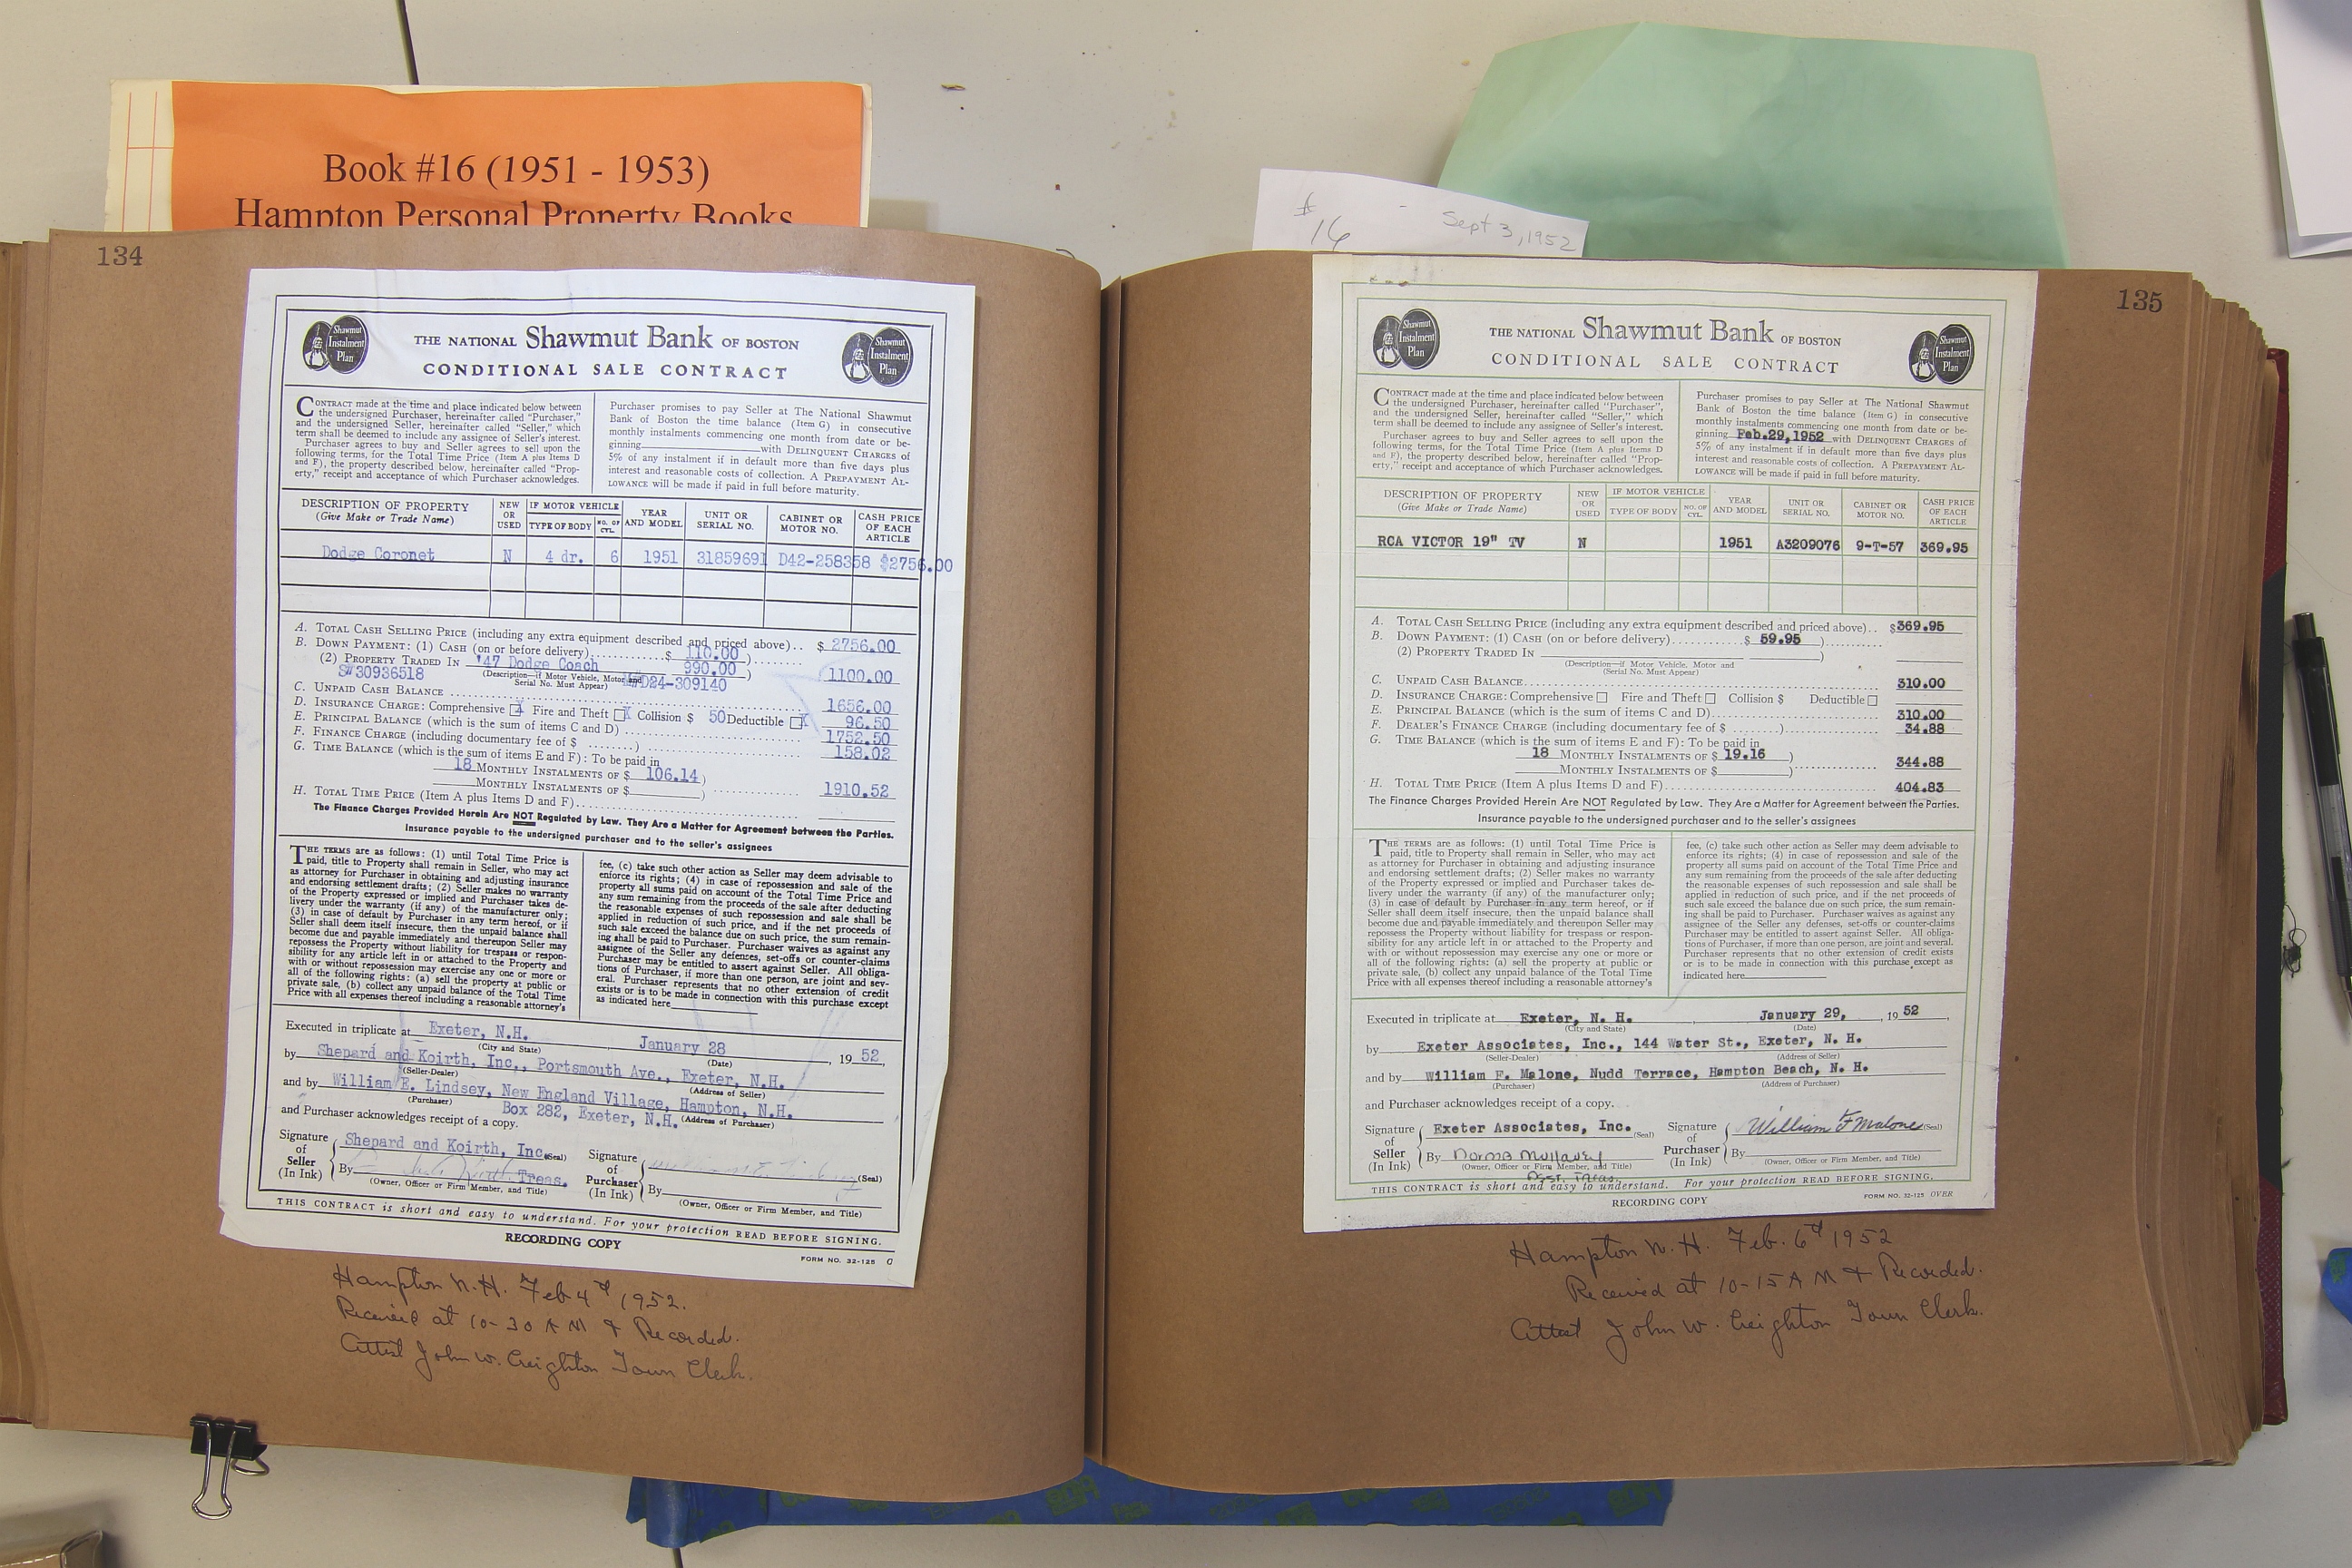 Book #16 (1951 - 1953)
Hampton Personal Property Books
# 16 - Sept 3, 1952
134
Shawmut Instalment Plan
THE NATIONAL Shawmut Bank OF BOSTON
CONDITIONAL SALE CONTRACT
Shawmut Instalment Plan
CONTRACT made at the time and place indicated below between
the undersigned Purchaser, hereinafter called "Purchaser,"
and the undersigned Seller, hereinafter called "Seller," which
term shall be deemed to include any assignee of Seller's interest.
Purchaser agrees to buy and Seller agrees to sell upon the
following terms, for the Total Time Price (Item A plus Items D
and F), the property described below, hereinafter called "Prop-
erty," receipt and acceptance of which Purchaser acknowledges.
Purchaser promises to pay Seller at The National Shawmut
Bank of Boston the time balance (Item G) in consecutive
monthly instalments commencing one month from date or be-
ginning with DELINQUENT CHARGES of
5% of any instalment if in default more than five days plus
interest and reasonable costs of collection. A PREPAYMENT AL-
LOWANCE will be made if paid in full before maturity.
DESCRIPTION OF PROPERTY (Give Make or Trade Name) NEW OR USED IF MOTOR VEHICLE TYPE OF BODY NO. OF CYL. YEAR AND MODEL UNIT OR SERIAL NO. CABINET OR MOTOR NO. CASH PRICE OF EACH ARTICLE
Dodge Coronet N 4 dr. 6 1951 31859691 D42-258358 $2756.00
A. TOTAL CASH SELLING PRICE (including any extra equipment described and priced above).. $ 2756.00
B. DOWN PAYMENT: (1) CASH (on or before delivery)............$ 110.00 )........
(2) PROPERTY TRADED IN '47 Dodge Coach 990.00 ) 1100.00
S#30936518 (Description—if Motor Vehicle, Motor and Serial No. Must Appear) M#D24-309140
C. UNPAID CASH BALANCE 1656.00
D. INSURANCE CHARGE: Comprehensive X Fire and Theft X Collision $ 50 Deductible X 96.50
E. PRINCIPAL BALANCE (which is the sum of items C and D) 1752.50
F. FINANCE CHARGE (including documentary fee of $ ........) 158.02
G. TIME BALANCE (which is the sum of items E and F): To be paid in
18 MONTHLY INSTALMENTS OF $ 106.14 )
MONTHLY INSTALMENTS OF $ ) 1910.52
H. TOTAL TIME PRICE (Item A plus Items D and F)
The Finance Charges Provided Herein Are NOT Regulated by Law. They Are a Matter for Agreement between the Parties.
Insurance payable to the undersigned purchaser and to the seller's assignees
THE TERMS are as follows: (1) until Total Time Price is
paid, title to Property shall remain in Seller, who may act
as attorney for Purchaser in obtaining and adjusting insurance
and endorsing settlement drafts; (2) Seller makes no warranty
of the Property expressed or implied and Purchaser takes de-
livery under the warranty (if any) of the manufacturer only;
(3) in case of default by Purchaser in any term hereof, or if
Seller shall deem itself insecure, then the unpaid balance shall
become due and payable immediately and thereupon Seller may
repossess the Property without liability for trespass or respon-
sibility for any article left in or attached to the Property and
with or without repossession may exercise any one or more or
all of the following rights: (a) sell the property at public or
private sale, (b) collect any unpaid balance of the Total Time
Price with all expenses thereof including a reasonable attorney's
fee, (c) take such other action as Seller may deem advisable to
enforce its rights; (4) in case of repossession and sale of the
property all sums paid on account of the Total Time Price and
any sum remaining from the proceeds of the sale after deducting
the reasonable expenses of such repossession and sale shall be
applied in reduction of such price, and if the net proceeds of
such sale exceed the balance due on such price, the sum remain-
ing shall be paid to Purchaser. Purchaser waives as against any
assignee of the Seller any defenses, set-offs or counter-claims
Purchaser may be entitled to assert against Seller. All obliga-
tions of Purchaser, if more than one person, are joint and sev-
eral. Purchaser represents that no other extension of credit
exists or is to be made in connection with this purchase except
as indicated here
Executed in triplicate at Exeter, N.H. , January 28 , 19 52,
(City and State) (Date)
by Shepard and Koirth, Inc., Portsmouth Ave., Exeter, N.H.
(Seller-Dealer) (Address of Seller)
and by William E. Lindsey, New England Village, Hampton, N.H.
(Purchaser) Box 282, Exeter, N.H. (Address of Purchaser)
and Purchaser acknowledges receipt of a copy.
Signature of Seller (In Ink) Shepard and Koirth, Inc. (Seal)
By Treas.
(Owner, Officer or Firm Member, and Title)
Signature of Purchaser (In Ink) (Seal)
By
(Owner, Officer or Firm Member, and Title)
THIS CONTRACT is short and easy to understand. For your protection READ BEFORE SIGNING.
RECORDING COPY
FORM NO. 32-125 O
Hampton N.H. Feb 4th 1952.
Received at 10-30 AM & Recorded.
Attest John W. Creighton Town Clerk.
135
Shawmut Instalment Plan
THE NATIONAL Shawmut Bank OF BOSTON
CONDITIONAL SALE CONTRACT
Shawmut Instalment Plan
CONTRACT made at the time and place indicated below between
the undersigned Purchaser, hereinafter called "Purchaser",
and the undersigned Seller, hereinafter called "Seller," which
term shall be deemed to include any assignee of Seller's interest.
Purchaser agrees to buy and Seller agrees to sell upon the
following terms, for the Total Time Price (Item A plus Items D
and F), the property described below, hereinafter called "Prop-
erty," receipt and acceptance of which Purchaser acknowledges.
Purchaser promises to pay Seller at The National Shawmut
Bank of Boston the time balance (Item G) in consecutive
monthly instalments commencing one month from date or be-
ginning Feb.29,1952 with DELINQUENT CHARGES of
5% of any instalment if in default more than five days plus
interest and reasonable costs of collection. A PREPAYMENT AL-
LOWANCE will be made if paid in full before maturity.
DESCRIPTION OF PROPERTY (Give Make or Trade Name) NEW OR USED IF MOTOR VEHICLE TYPE OF BODY NO. OF CYL. YEAR AND MODEL UNIT OR SERIAL NO. CABINET OR MOTOR NO. CASH PRICE OF EACH ARTICLE
RCA VICTOR 19" TV N 1951 A3209076 9-T-57 369.95
A. TOTAL CASH SELLING PRICE (including any extra equipment described and priced above).. $369.95
B. DOWN PAYMENT: (1) CASH (on or before delivery)............$ 59.95 )
(2) PROPERTY TRADED IN )
(Description—if Motor Vehicle, Motor and Serial No. Must Appear)
C. UNPAID CASH BALANCE 310.00
D. INSURANCE CHARGE: Comprehensive Fire and Theft Collision $ Deductible
E. PRINCIPAL BALANCE (which is the sum of items C and D) 310.00
F. DEALER'S FINANCE CHARGE (including documentary fee of $ ........) 34.88
G. TIME BALANCE (which is the sum of items E and F): To be paid in
18 MONTHLY INSTALMENTS OF $ 19.16 )
MONTHLY INSTALMENTS OF $ ) 344.88
H. TOTAL TIME PRICE (Item A plus Items D and F) 404.83
The Finance Charges Provided Herein Are NOT Regulated by Law. They Are a Matter for Agreement between the Parties.
Insurance payable to the undersigned purchaser and to the seller's assignees
THE TERMS are as follows: (1) until Total Time Price is
paid, title to Property shall remain in Seller, who may act
as attorney for Purchaser in obtaining and adjusting insurance
and endorsing settlement drafts; (2) Seller makes no warranty
of the Property expressed or implied and Purchaser takes de-
livery under the warranty (if any) of the manufacturer only;
(3) in case of default by Purchaser in any term hereof, or if
Seller shall deem itself insecure, then the unpaid balance shall
become due and payable immediately and thereupon Seller may
repossess the Property without liability for trespass or respon-
sibility for any article left in or attached to the Property and
with or without repossession may exercise any one or more or
all of the following rights: (a) sell the property at public or
private sale, (b) collect any unpaid balance of the Total Time
Price with all expenses thereof including a reasonable attorney's
fee, (c) take such other action as Seller may deem advisable to
enforce its rights; (4) in case of repossession and sale of the
property all sums paid on account of the Total Time Price and
any sum remaining from the proceeds of the sale after deducting
the reasonable expenses of such repossession and sale shall be
applied in reduction of such price, and if the net proceeds of
such sale exceed the balance due on such price, the sum remain-
ing shall be paid to Purchaser. Purchaser waives as against any
assignee of the Seller any defenses, set-offs or counter-claims
Purchaser may be entitled to assert against Seller. All obliga-
tions of Purchaser, if more than one person, are joint and several.
Purchaser represents that no other extension of credit exists
or is to be made in connection with this purchase except as
indicated here
Executed in triplicate at Exeter, N. H. , January 29, , 19 52 ,
(City and State) (Date)
by Exeter Associates, Inc., 144 Water St., Exeter, N. H.
(Seller-Dealer) (Address of Seller)
and by William F. Malone, Nudd Terrace, Hampton Beach, N. H.
(Purchaser) (Address of Purchaser)
and Purchaser acknowledges receipt of a copy.
Signature of Seller (In Ink) Exeter Associates, Inc. (Seal)
By Norma Mullavey
(Owner, Officer or Firm Member, and Title)
Asst. Treas.
Signature of Purchaser (In Ink) William F Malone (Seal)
By
(Owner, Officer or Firm Member, and Title)
THIS CONTRACT is short and easy to understand. For your protection READ BEFORE SIGNING.
RECORDING COPY
FORM NO. 32-125 OVER
Hampton N. H. Feb. 6th 1952
Received at 10-15 AM & Recorded.
Attest John W. Creighton Town Clerk.